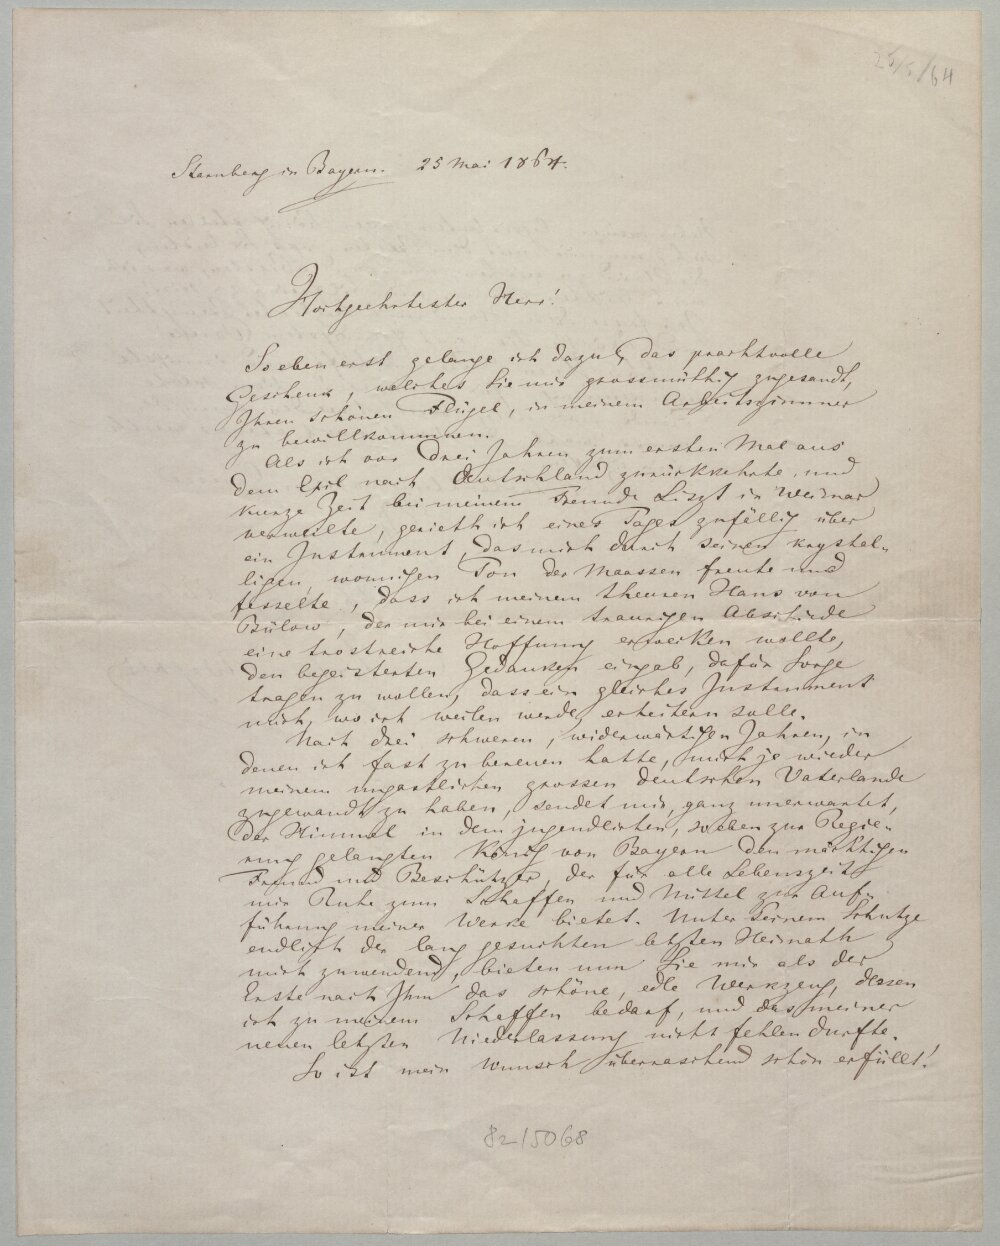 25/5/64
Starnberg in Bayern. 25 Mai 1864.
Hochgeehrtester Herr!
Soeben erst gelange ich dazu, das prachtvolle
Geschenk, welches Sie mir grossmüthig zugesandt,
Ihren schönen Flügel, in meinem Arbeitszimmer
zu bewillkommnen.
Als ich vor drei Jahren zum ersten Mal aus
dem Exil nach Deutschland zurückkehrte, und
kurze Zeit bei meinem Freunde Liszt in Weimar
verweilte, gerieth ich eines Tages zufällig über
ein Instrument, das mich durch seinen krystal-
ligen wonnigen Ton der Maassen freute und
fesselte, dass ich meinem theuren Hans von
Bülow, der mir bei einem traurigen Abschiede
eine trostreiche Hoffnung erwecken wollte,
den begeisterten Gedanken eingab, dafür Sorge
tragen zu wollen, dass ein gleiches Instrument
mich, wo ich weilen werde, erheitern solle.
Nach drei schweren, widerwärtigen Jahren, in
denen ich fast zu bereuen hatte, mich je wieder
meinem ungastlichen grossen deutschen Vaterlande
zugewandt zu haben, sendet mir, ganz unerwartet,
der Himmel in dem jugendlichen, soeben zur Regie-
rung gelangten König von Bayern den mächtigen
Freund und Beschützer, der für alle Lebenszeit
mir Ruhe zum Schaffen und Mittel zur Auf-
führung meiner Werke bietet. Unter Seinem Schutze
endlich der lang gesuchten letzten Heimath
mich zuwendend, bieten nun Sie mir als der
Erste nach Ihm das schöne, edle Werkzeug, dessen
ich zu meinem Schaffen bedarf, und das meiner
neuen letzten Niederlassung nicht fehlen durfte.
So ist mein Wunsch überraschend schön erfüllt!
82/5068